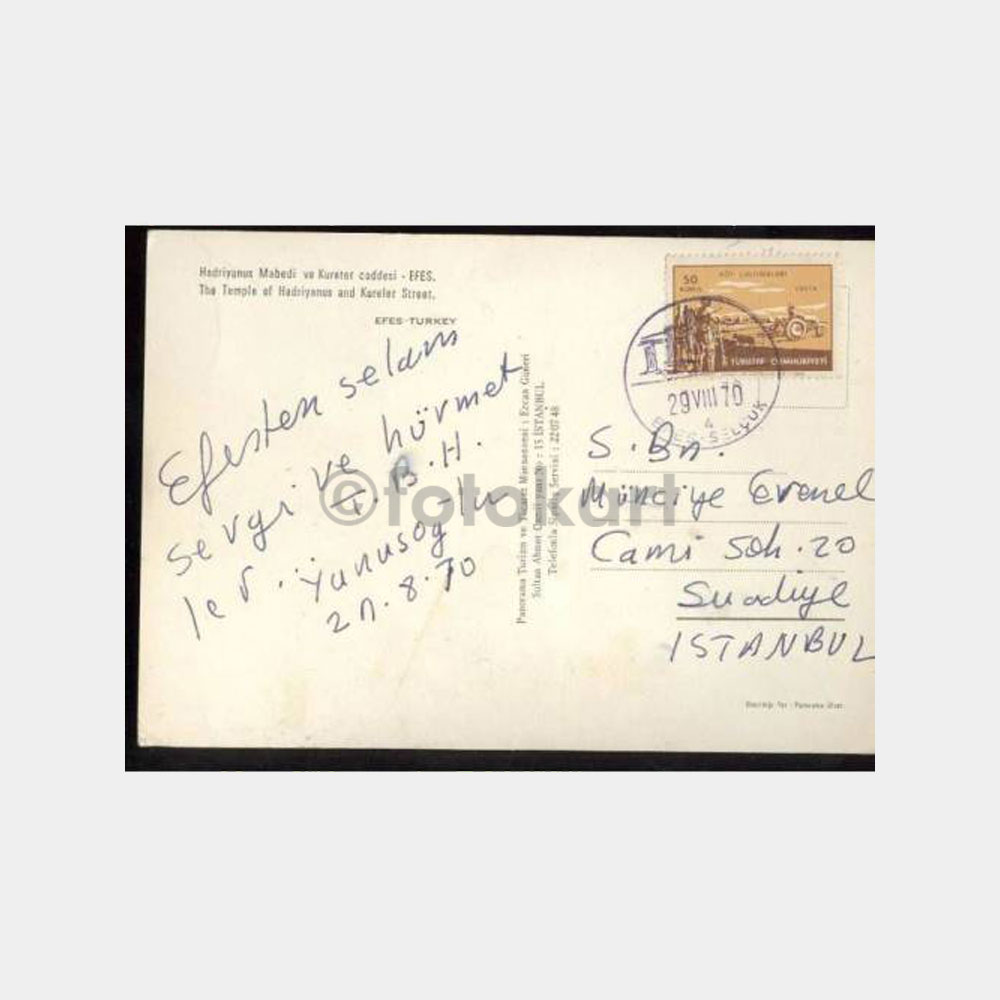 Hadriyanus Mabedi ve Kureter caddesi - EFES.
The Temple of Hadriyanus and Kureler Street.
EFES-TURKEY
Efesten selam
sevgi ve hürmet
ler..
I.B.H.
Yunusoglu
2n.8.70
Panorama Turizm ve Ticaret Müessesesi : Ezcan Güneri
Sultan Ahmet Camii yanı No : 15 İSTANBUL
Telefonla Sipariş Servisi : 22 07 48
50
KURUŞ
KÖY ÇALIŞMALARI
POSTA
TÜRKİYE CUMHURİYETİ
29 VIII 70
4
EFES-SELÇUK
S.Bn.
Münciye Evenel
Cami Sok. 20
Suadiye
ISTANBUL
©fotokart